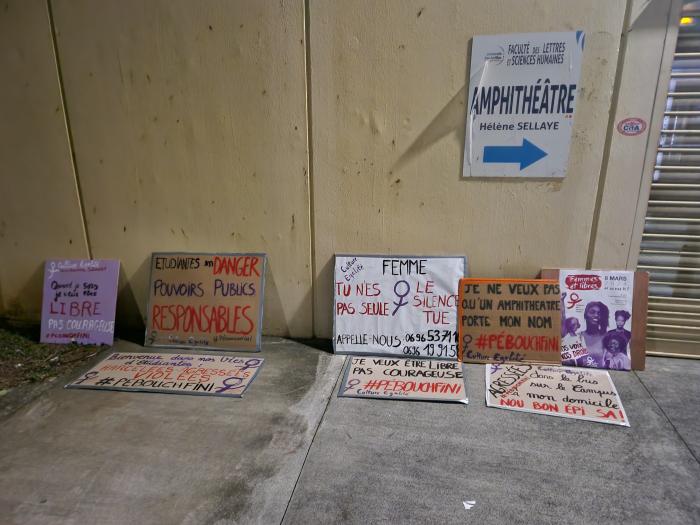 FACULTÉ DES LETTRES
ET SCIENCES HUMAINES
AMPHITHÉÂTRE
Hélène SELLAYE
Culture Egalité
Quand je sors
je veux être
LIBRE
PAS COURAGEUSE
#PEBOUCHFINI
ETUDIANTES en DANGER
POUVOIRS PUBLICS
RESPONSABLES
Culture
Egalité
FEMME
TU N'ES
PAS SEULE
LE
SILENCE
TUE
APPELLE-NOUS 0696 53 71
0696 19 91 5
JE NE VEUX PAS
QU'UN AMPHITHEATRE
PORTE MON NOM
#PÉBOUCHFINI
Culture Egalité
Femmes
et libres
8 MARS
NOS VOIX
NOS DROITS
Bienvenue dans nos vies
d'étudiantes
HARCELEES AGRESSEES
VIOLEES
#PÉBOUCHFINI
JE VEUX ÊTRE LIBRE
PAS COURAGEUSE
#PÉBOUCHFINI
Culture Egalité
AGRESSÉES
dans le bus
sur le Campus
à mon domicile
NOU BON EPI SA!